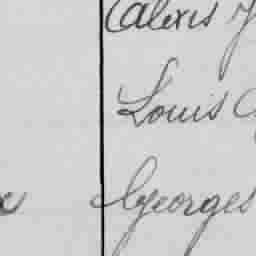 Alexis
Louis
Georges